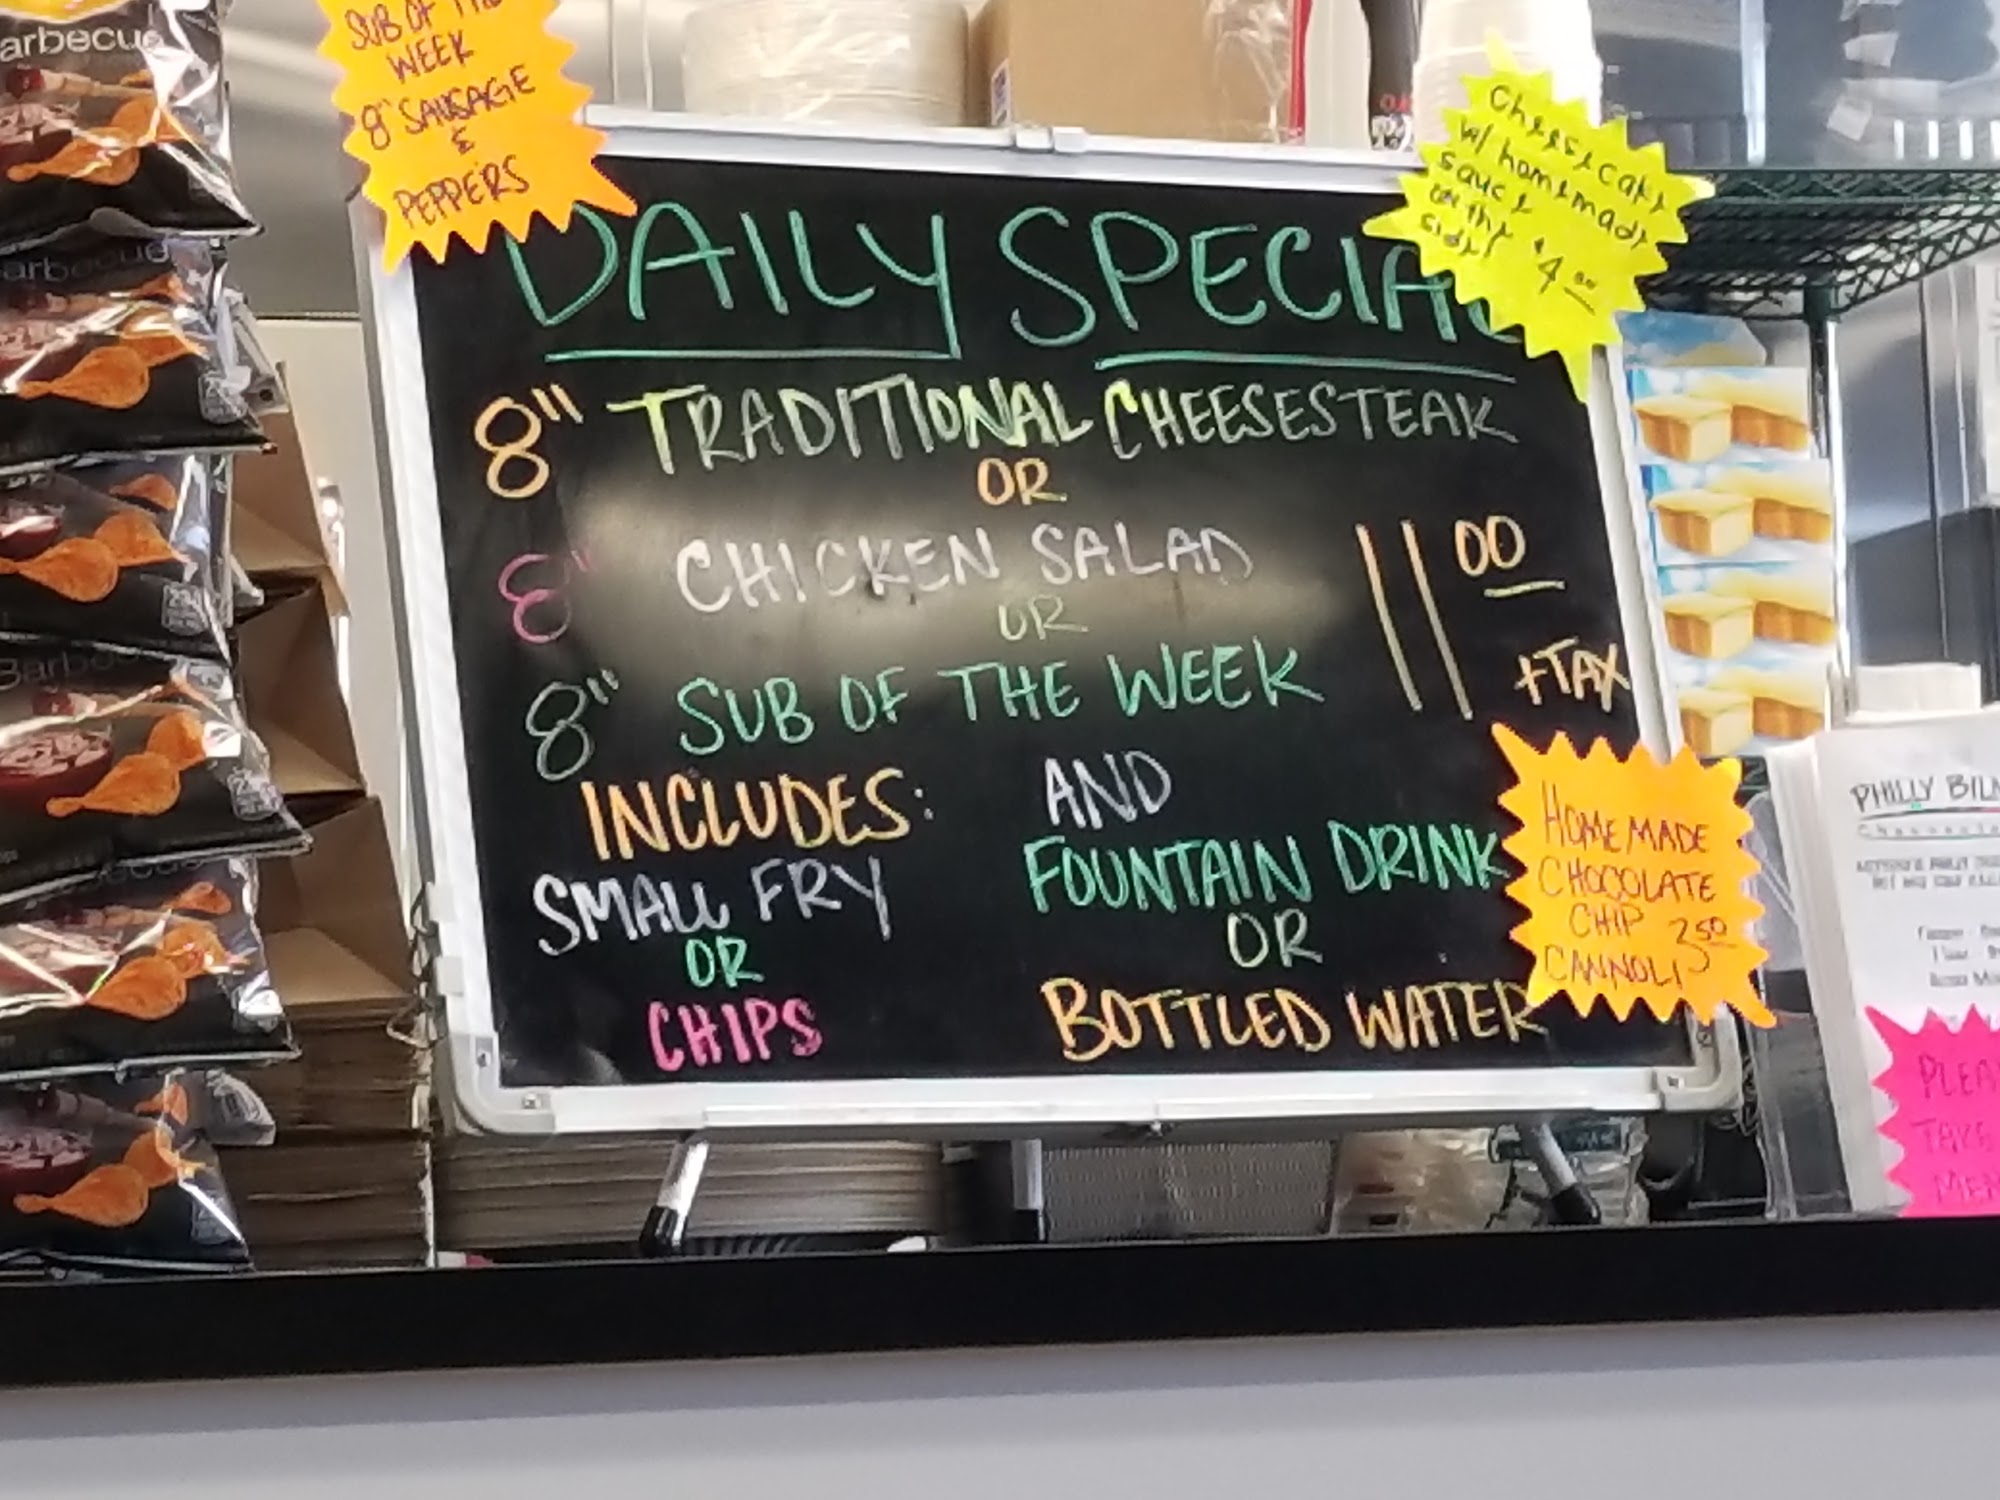 arbecue
SUB OF THE
WEEK
8" SAUSAGE
&
PEPPERS
Cheesecake
w/ homemade
sauce
on the
side! $4.00
DAILY SPECIAL
8" TRADITIONAL CHEESESTEAK
OR
8" CHICKEN SALAD
OR
8" SUB OF THE WEEK
11 00
+TAX
INCLUDES:
SMALL FRY
OR
CHIPS
AND
FOUNTAIN DRINK
OR
BOTTLED WATER
HOMEMADE
CHOCOLATE
CHIP 3 50
CANNOLI
arbecue
Barbecue
PHILLY BILN
PLEA
TAKE
MEN